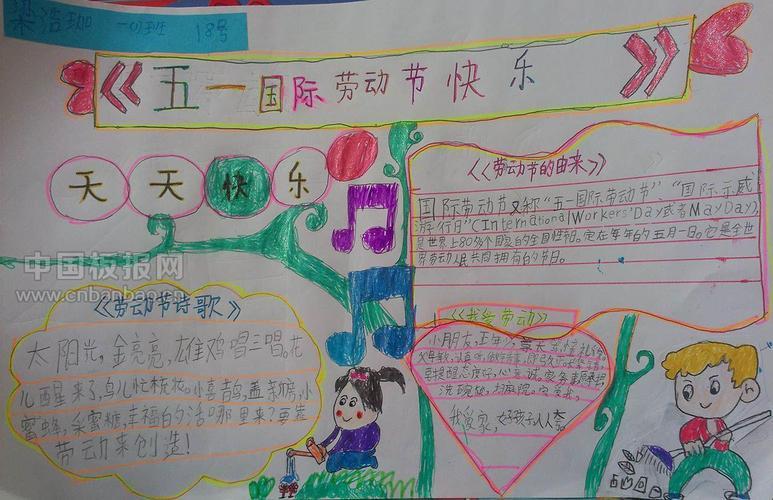 梁浩珈 一(1)班 18号
《五一国际劳动节快乐》
天天快乐
《劳动节的由来》
国际劳动节又称“五一国际劳动节”“国际示威
游行日”(International Workers' Day或者May Day),
是世界上80多个国家的全国性节日。定在每年的五月一日。它是全世
界劳动人民共同拥有的节日。
中国板报网
www.cnbanbao.cn
《劳动节诗歌》
太阳光,金亮亮,雄鸡唱三唱。花
儿醒来了,鸟儿忙梳妆。小喜鹊,盖新房,小
蜜蜂,采蜜糖,幸福的生活哪里来?要靠
劳动来创造!
劳动》
小朋友,
洗碗筷,
我爱家,好孩子人人夸。